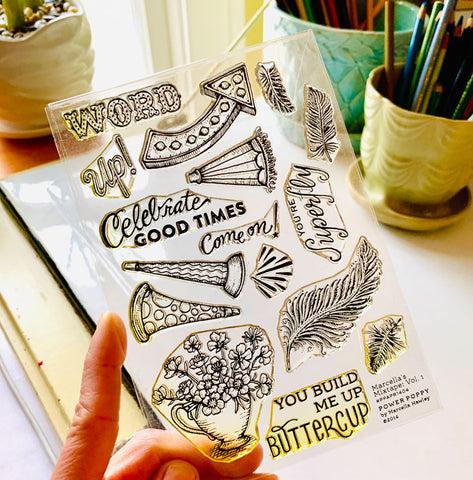 WORD
Up!
Celebrate
GOOD TIMES
Come on!
YOU'RE
SO FLY
YOU BUILD
ME UP
BUTTERCUP
Marcella's
Mixtape: Vol. 1
#PPAPR1404
POWER POPPY
by Marcella Hawley
©2014